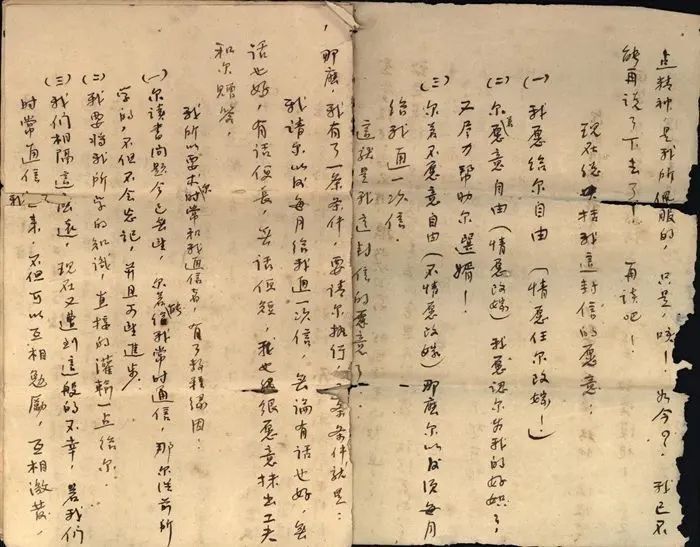 点精神，是我所佩服的，只是，唉！如今？，我已不
能再说了下去了！再谈吧！
现在总括我这一封信的意思：
(一) 我愿给尔自由（情愿任尔改嫁！）
(二) 尔若愿意自由（情愿改嫁）我愿认尔为我的好妹了，
又尽力帮助尔选婿！
(三) 尔若不愿意自由（不情愿改嫁）那么尔以后须每月
给我通一次信．
这就是我这封信的意思了．
那么，我有了一条条件，要请尔执行，条条件就是：
我请尔以后每月给我通一次信，无论有话也好，无
话也好，有话便长，无话便短，我也很愿意抹出工夫
和尔赠答，
我所以要求尔时常和我通信者，有了数种缘因：
(一) 尔读书问题今已无望，尔若能给我常时通信，那尔从前所
学的，不但不会忘记，并且可望进步．
(二) 我要将我所学的知识，直接的灌输一点给尔．
(三) 我们相隔这么远，现在又遭到这般的不幸，若我们
时常通信，我来，不但可以互相勉励，互相激发，